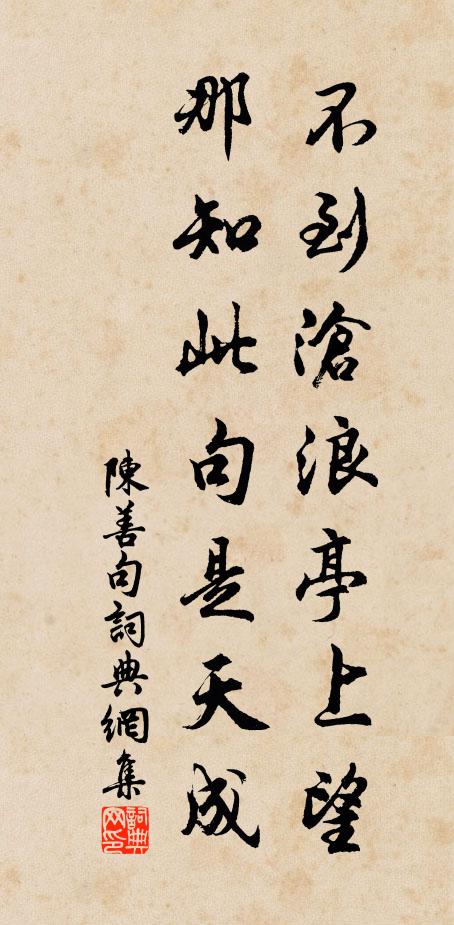 不到滄浪亭上望
那知此句是天成
陳善句詞典網集
詞典網印